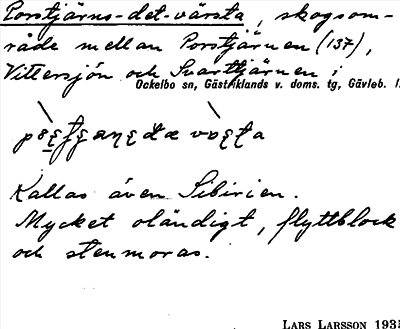 Porstjärns-det-värsta, skogsom-
råde mellan Porstjärnen (137),
Vittersjön och Svarttjärnen i
Ockelbo sn, Gästriklands v. doms. tg, Gävleb. l.
Kallas även Sibirien.
Mycket oländigt, flyttblock
och stenmoras.
LARS LARSSON 1935